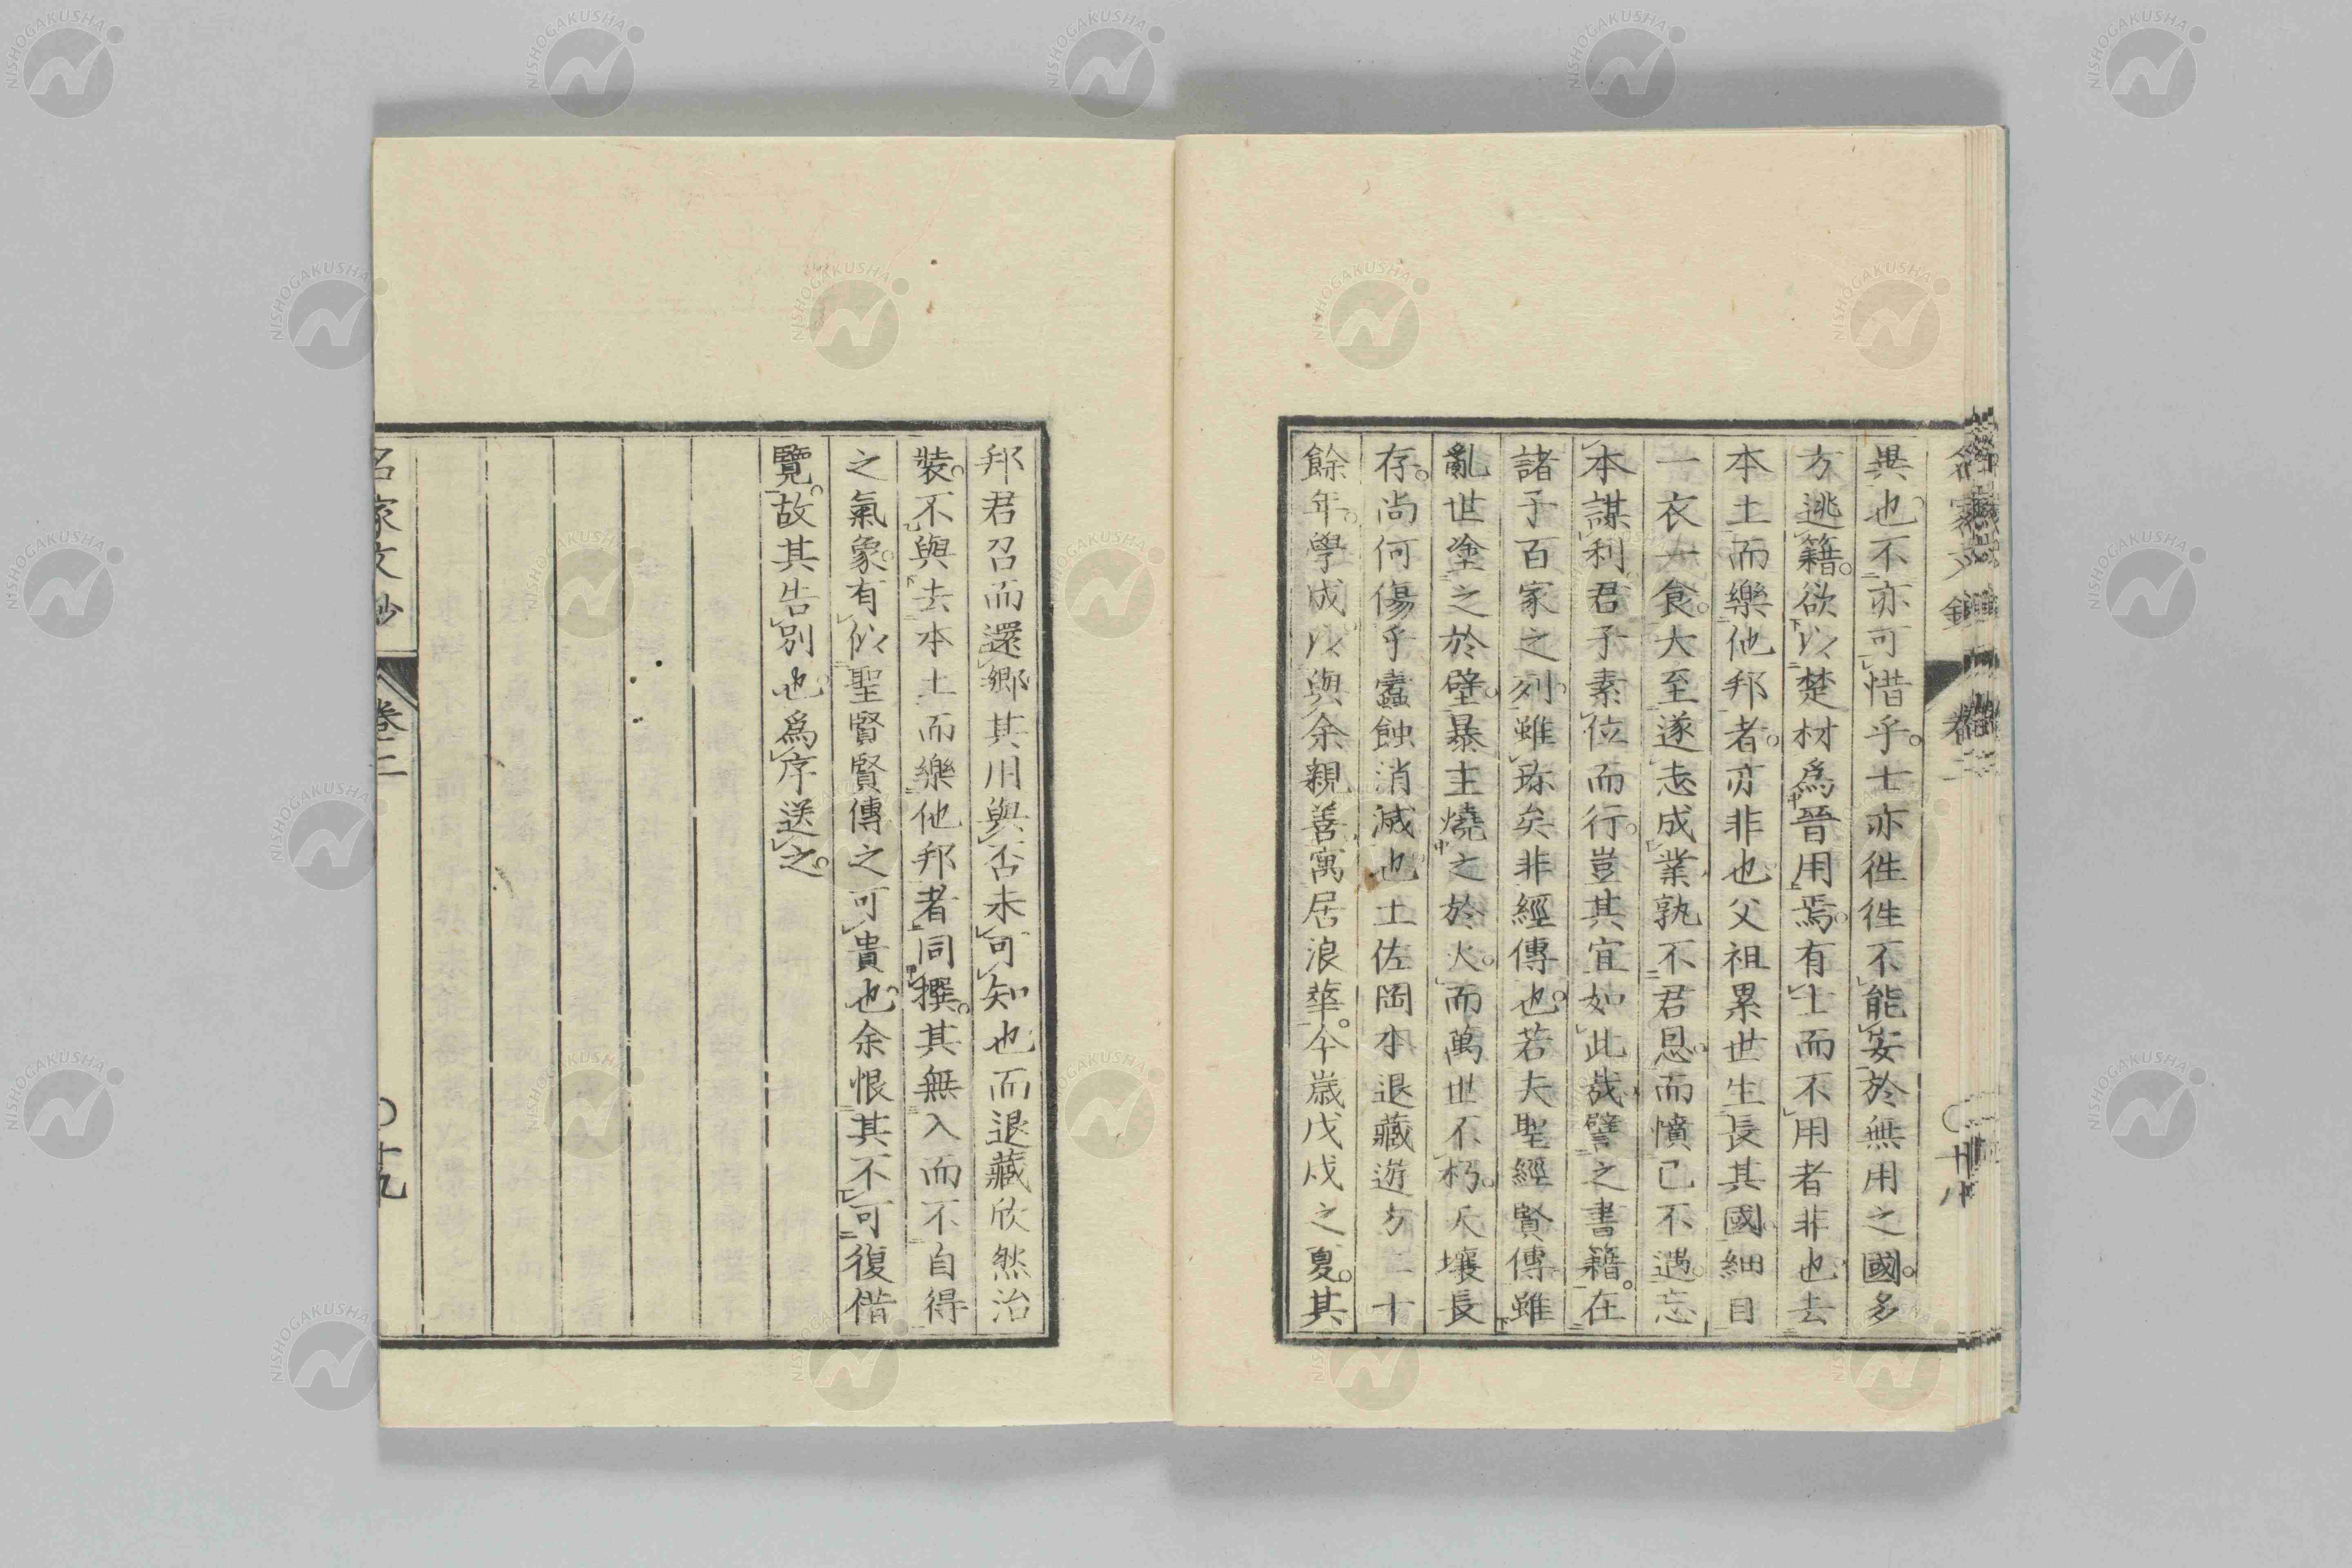 異也。不亦可惜乎。士亦徃徃不能安於無用之國。多
方逃籍。欲以楚材爲晉用焉。有士而不用者非也去
本土而樂他邦者。亦非也父祖累世生長其國。細自
一衣一食。大至遂志成業孰不君恩。而憤己不遇。忘
本謀利君子素位而行。豈其宜如此哉譬之書籍。在
諸子百家之列雖珎矣非經傳也。若夫聖經賢傳雖
亂世塗之於壁。暴主燒之於火。而萬世不朽。天壤長
存。尚何傷乎蠹蝕消滅也土佐岡本退藏遊方二十
餘年。學成以與余親善寓居浪華。今歲戊戌之夏。其
邦君召而還鄉其用與否未可知也而退藏欣然治
裝。不與去本土而樂他邦者同撰。其無入而不自得
之氣象。有似聖賢賢傳之可貴也。余恨其不可復借
覽。故其告別也爲序送之。
名家文鈔
卷二
〇十九